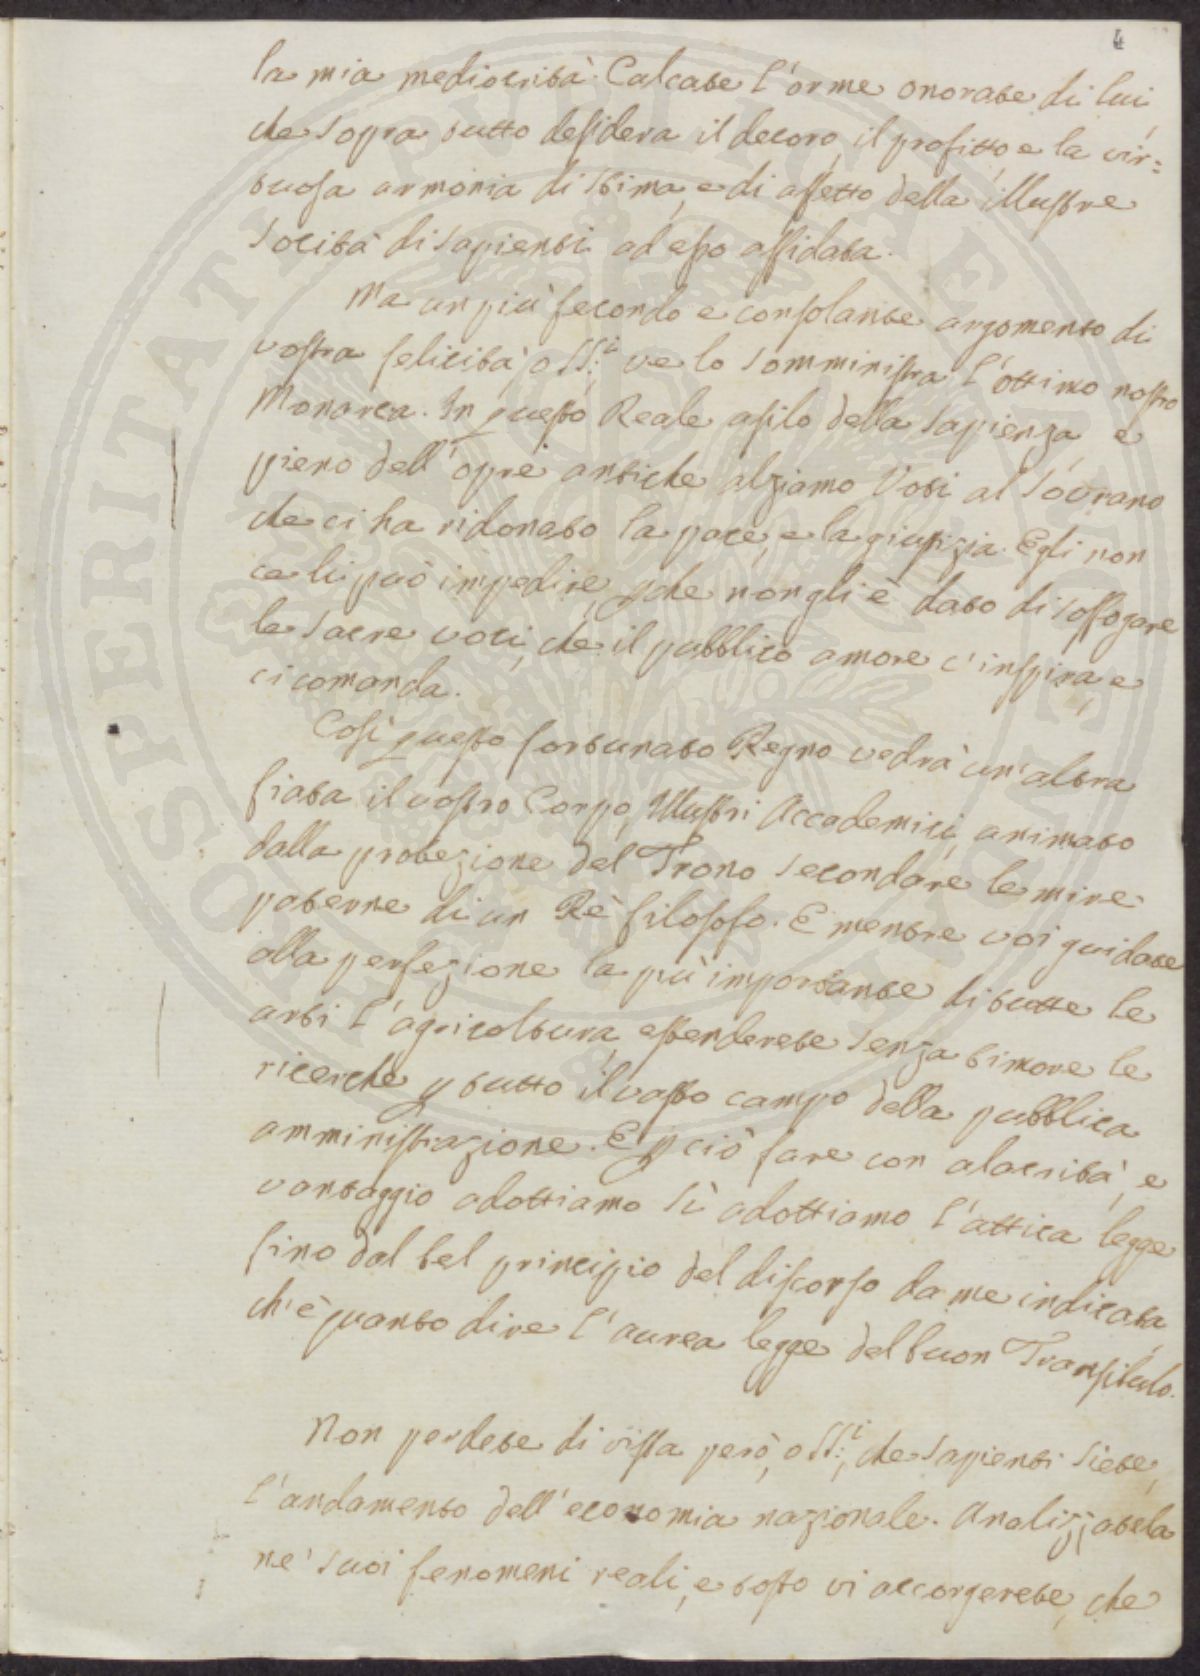 4
la mia mediocrità. Calcate l'orme onorate di lui,
che sopra tutto desidera il decoro, il profitto e la vir=
tuosa armonia di stima, e di affetto della illustre
società di sapienti ad esso affidata.
Ma un più fecondo e consolante argomento di
vostra felicità, o SS:i, ve lo somministra l'ottimo nostro
Monarca. In questo Reale asilo della sapienza, e
pieno dell'opre antiche alziamo Voti al Sovrano
che ci ha ridonato la pace, e la giustizia. Egli non
ce li può impedire, pche non gli è dato di soffogare
le sacre voci, che il pubblico amore c'inspira, e
ci comanda.
Così questo fortunato Regno vedrà un'altra
fiata il vostro Corpo, Illustri Accademici, animato
dalla protezione del Trono secondare le mire
paterne di un Rè filosofo. E mentre voi guidate
alla perfezione la più importante di tutte le
arti l'agricoltura, estenderete senza timore le
ricerche p tutto il vasto campo della pubblica
amministrazione. E p ciò fare con alacrità, e
vantaggio adottiamo sì adottiamo l'attica legge
fino dal bel principio del discorso da me indicata,
ch'è quanto dire l'aurea legge del buon Transibulo.
Non perdete di vista però, o SS:i, che sapienti siete,
l'andamento dell'economia nazionale. Analizzatela
ne' suoi fenomeni reali, e tosto vi accorgerete, che
PROSPERITATI PUBLICAE AUGENDAE